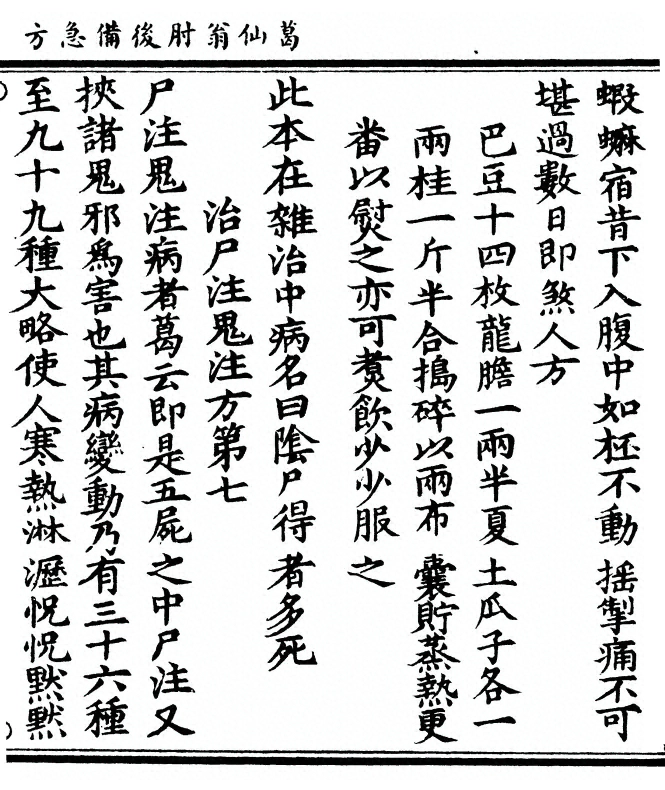 葛仙翁肘後備急方
蝦蟆宿昔下入腹中如柸不動揺掣痛不可
堪過數日即煞人方
巴豆十四枚龍膽一兩半夏土瓜子各一
兩桂一斤半合搗碎以兩布囊貯蒸熱更
番以熨之亦可煑飲少少服之
此本在雜治中病名曰陰尸得者多死
治尸注鬼注方第七
尸注鬼注病者葛云即是五屍之中尸注又
挾諸鬼邪爲害也其病變動乃有三十六種
至九十九種大略使人寒熱淋瀝怳怳默默